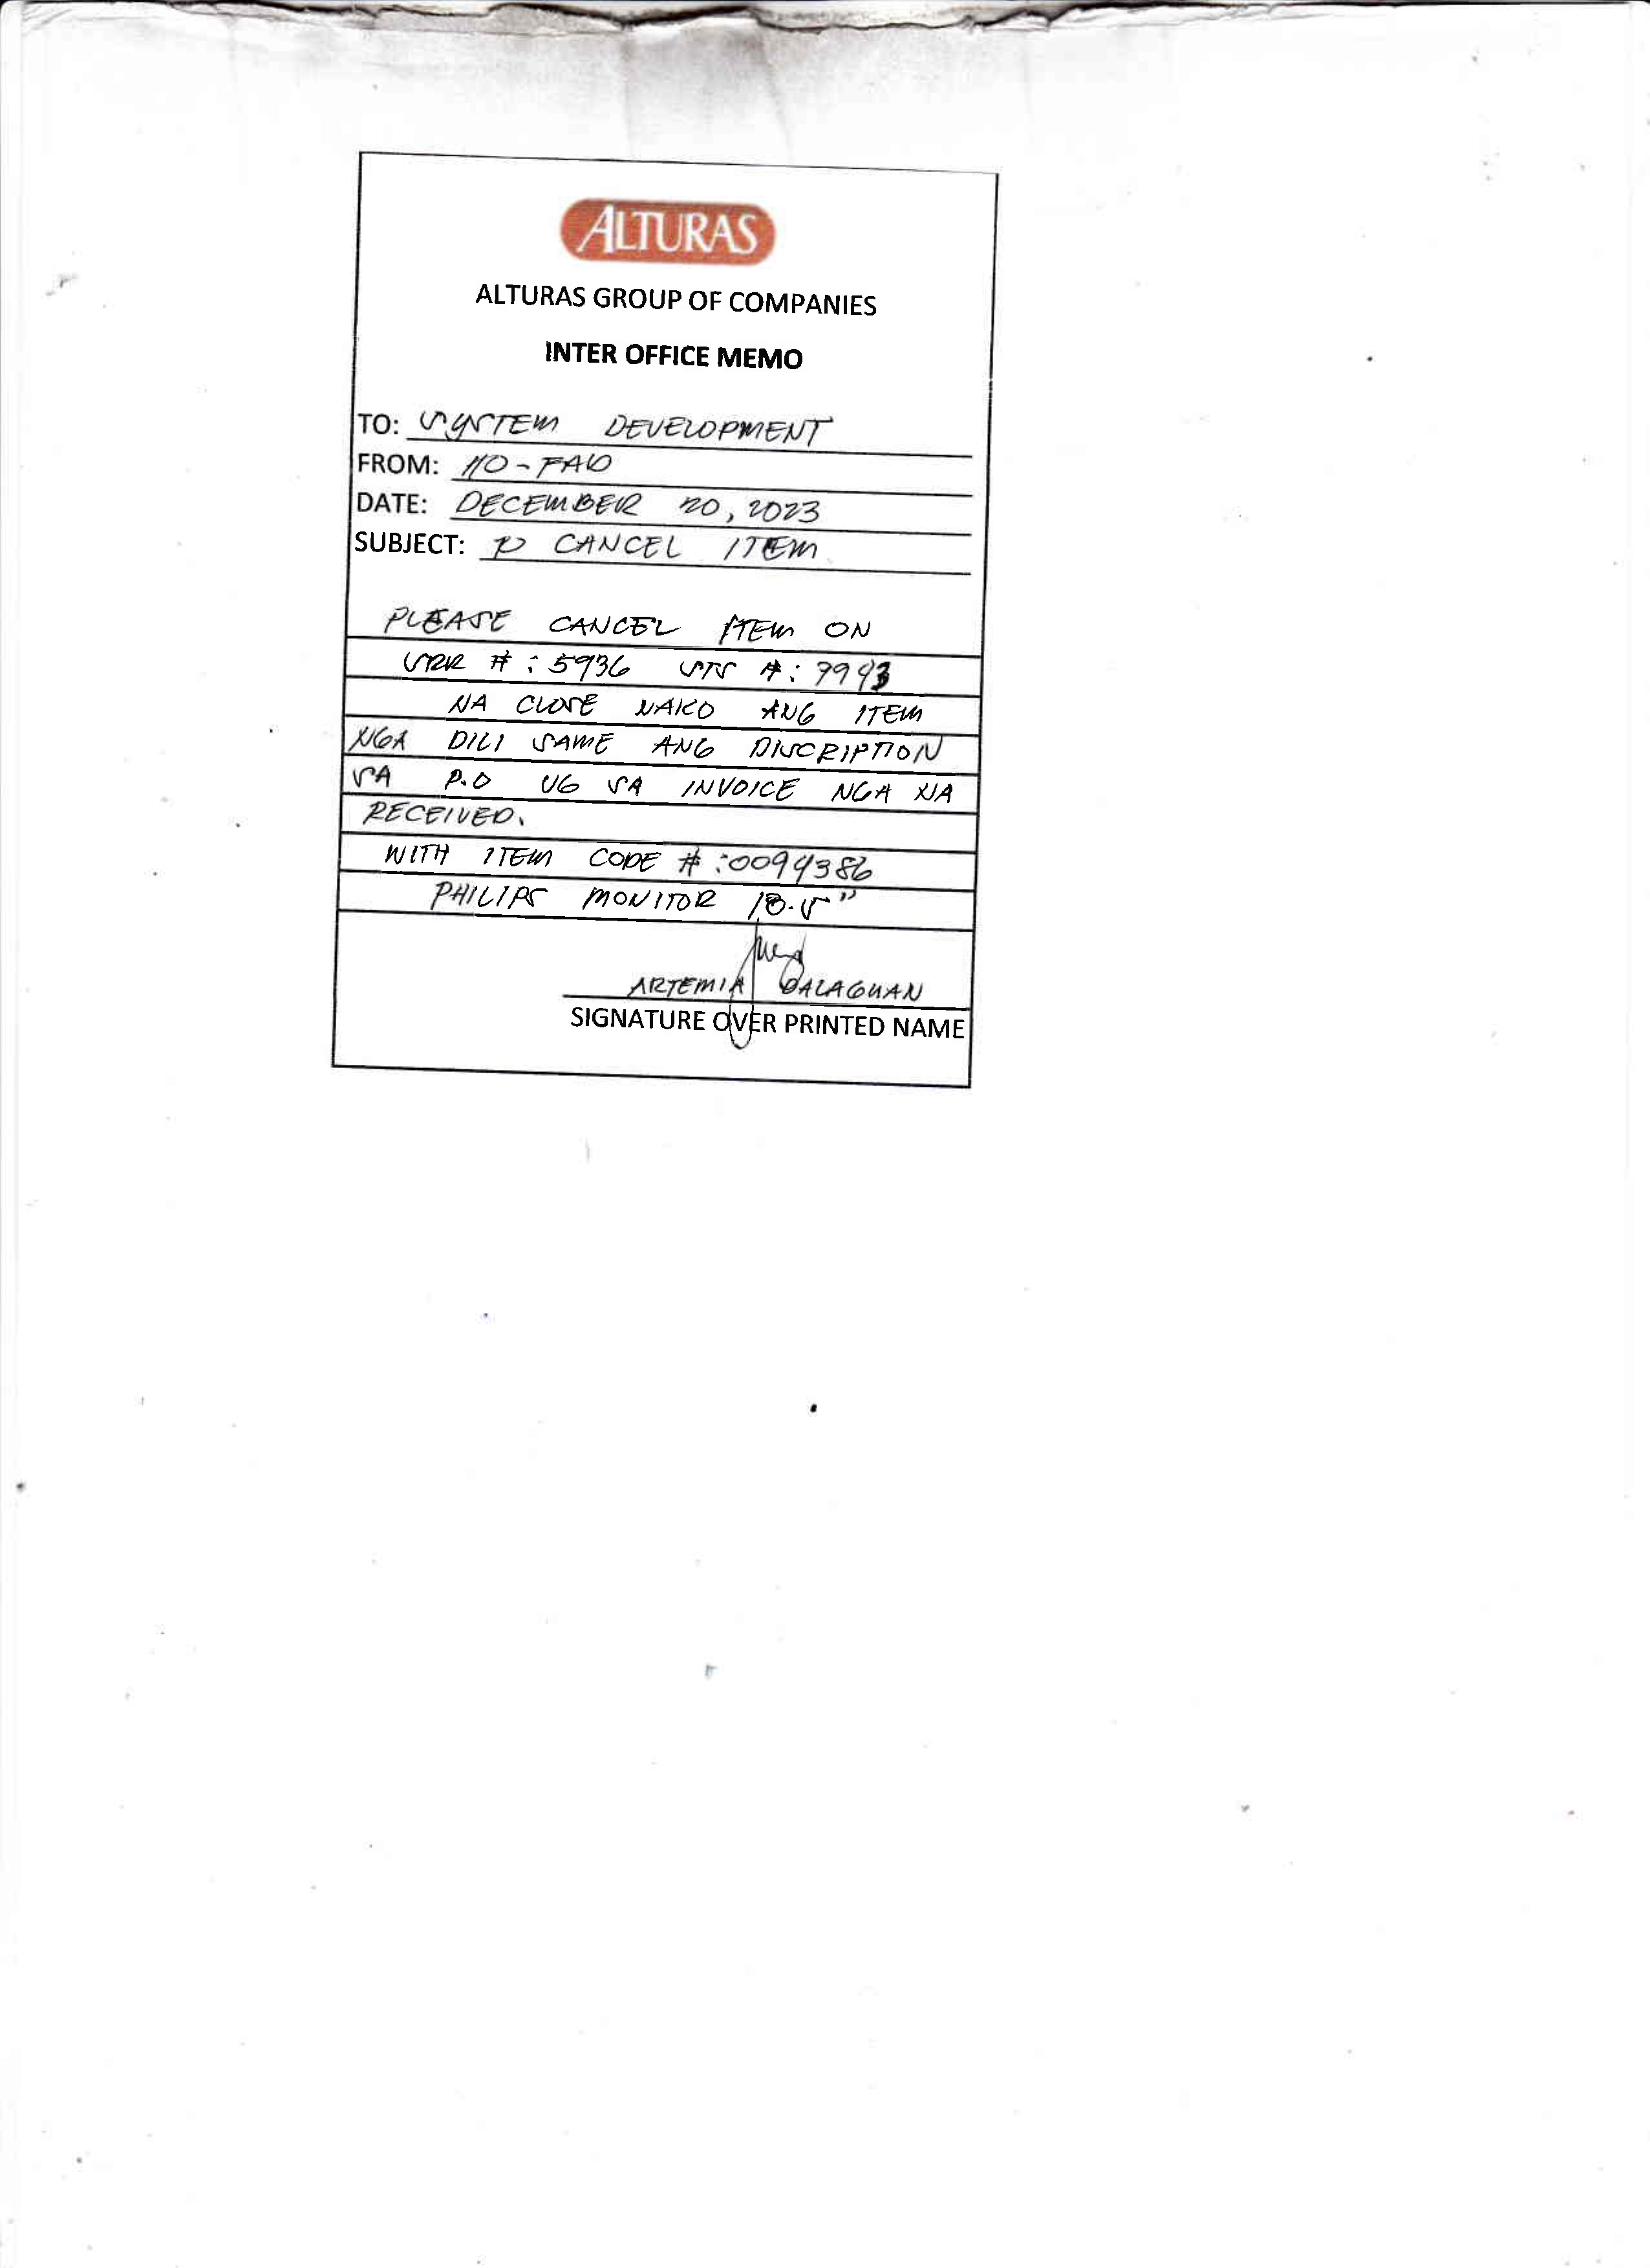 ALTURAS
ALTURAS GROUP OF COMPANIES
INTER OFFICE MEMO
TO: SYSTEM DEVELOPMENT
FROM: HO-FAD
DATE: DECEMBER 20, 2023
SUBJECT: CANCEL ITEM
PLEASE CANCEL ITEM ON
SRR #: 5936 STS #:
NA CLOSE NAKO ANG ITEM
NGA DILI SAME ANG DISCRIPTION
SA P.O UG SA INVOICE NGA NA
RECEIVED.
WITH ITEM CODE #:0094386
PHILIPS MONITOR 18.5"
ARTEMIA DALAGUAN
SIGNATURE OVER PRINTED NAME